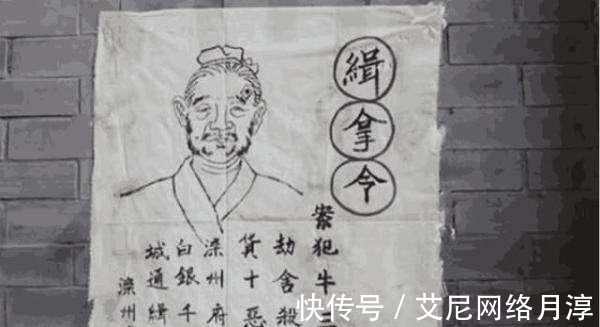 緝拿令
案犯牛二
劫舍殺
貨十惡
滦州府
白銀千
城通緝
滦州
快传号 / 艾尼网络月淳